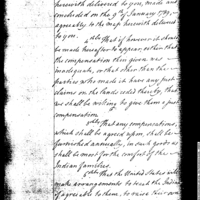 herewith delivered to you, made and
concluded on the 9th of January 1789,
agreeably to the map herewith delivered
to you.
4thly That if however it should
be made hereafter to appear, either that
the compensation then given was
inadequate, or that other than the
parties who made it have any just
claims on the lands ceded thereby, that
we shall be willing to give them a just
compensation
5thly That any compensations
which shall be agreed upon, shall be
furnished annually, in such goods as
shall be most for the comfort of the
Indian families.
6thly That the United States will
make arrangements to teach the Indians
if agreeable to them, to raise their own